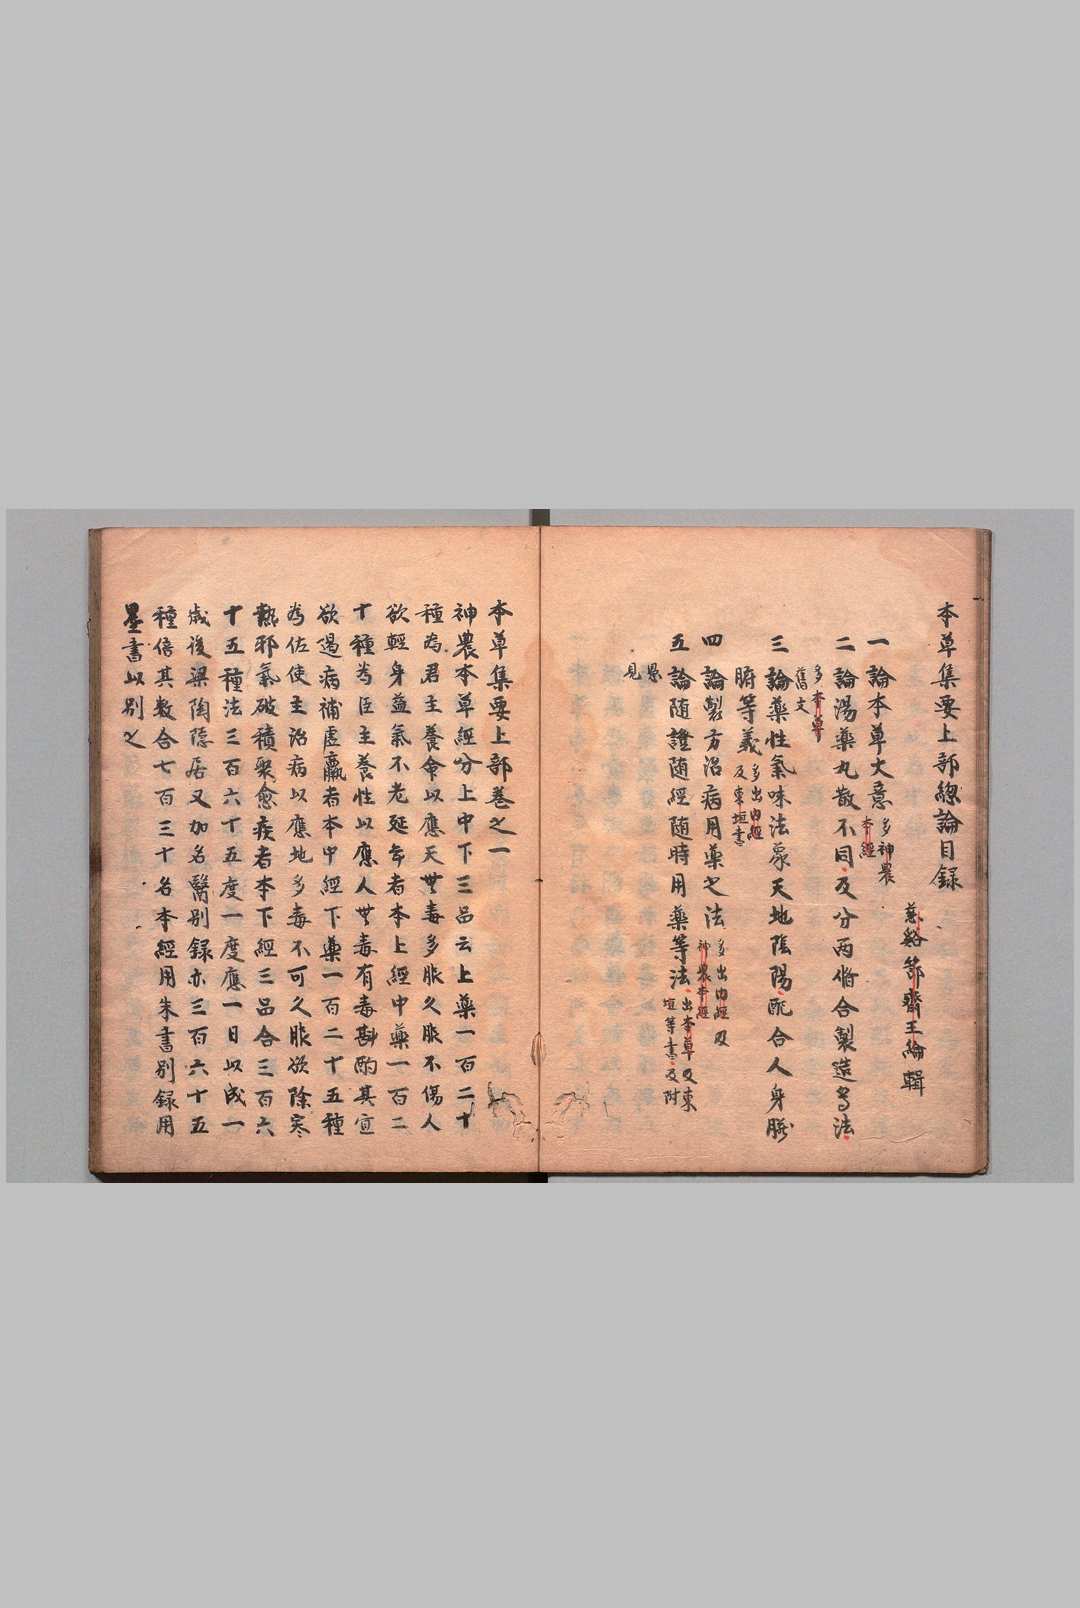 本草集要上部總論目録
慈谿節齋王綸輯
一論本草大意 多神農本經
二論湯藥丸散不同及分两脩合製造等法
多本草舊文
三論藥性氣味法象天地陰陽配合人身臟
腑等義 多出内經及東垣書
四論製方治病用藥之法 多出内經及神農本經
五論随證随經随時用藥等法 出本草及東垣等書及附
愚見
本草集要上部巻之一
神農本草經分上中下三品云上藥一百二十
種為君主養命以應天無毒多服久服不傷人
欲輕身益氣不老延年者本上經中藥一百二
十種為臣主養性以應人無毒有毒斟酌其宜
欲遏病補虚羸者本中經下藥一百二十五種
為佐使主治病以應地多毒不可久服欲除寒
熱邪氣破積聚愈疾者本下經三品合三百六
十五種法三百六十五度一度應一日以成一
歳後梁陶隠居又加名醫別録亦三百六十五
種倍其数合七百三十名本經用朱書別録用
墨書以別之